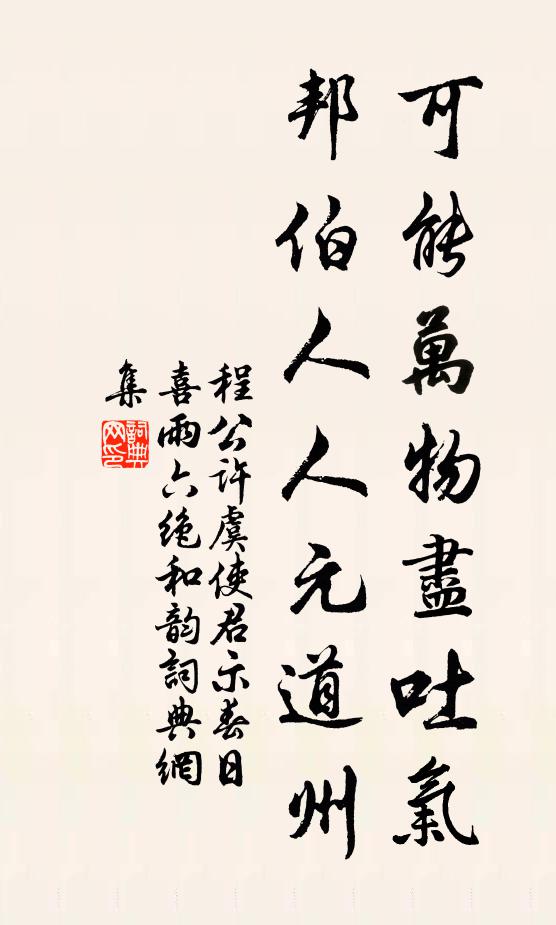 可能萬物盡吐氣
邦伯人人元道州
程公許虞使君示春日
喜雨六绝和韵詞典網
集
詞典
网印